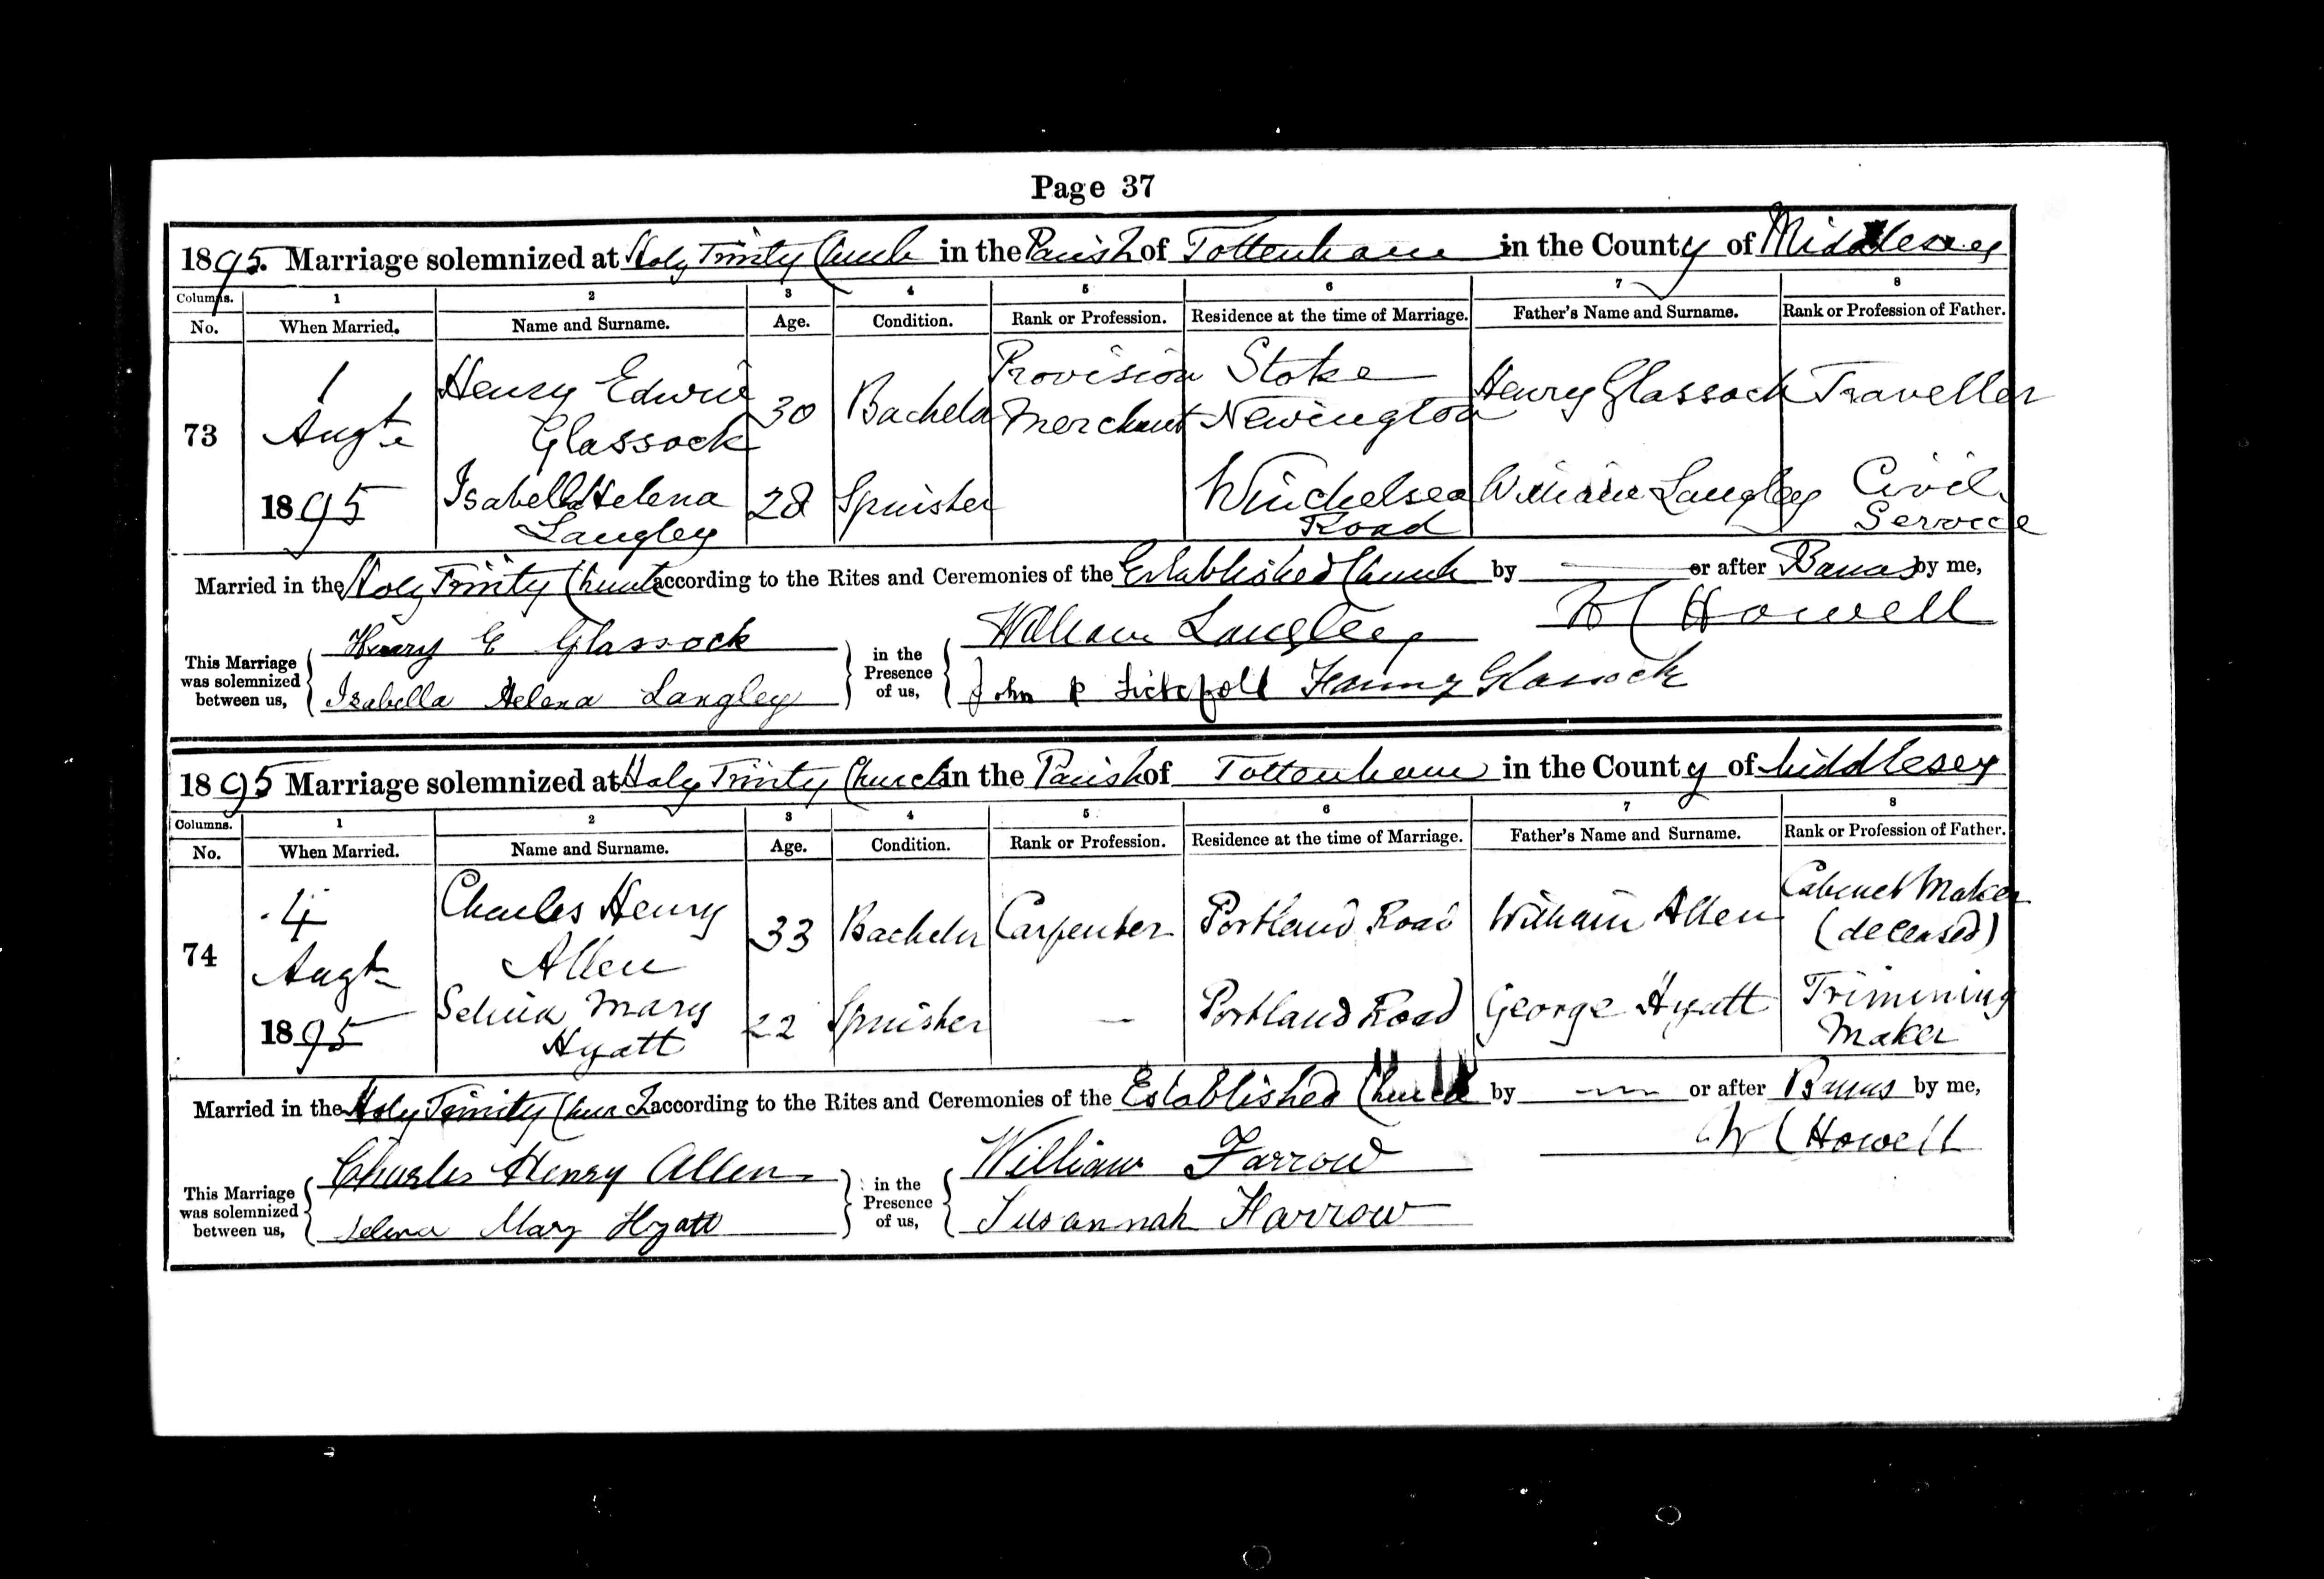 Page 37
1895. Marriage solemnized at Holy Trinity Church in the Parish of Tottenham in the County of Middlesex
Columns. 1 2 3 4 5 6 7 8
No. When Married. Name and Surname. Age. Condition. Rank or Profession. Residence at the time of Marriage. Father's Name and Surname. Rank or Profession of Father.
73 1 Augt 1895 Henry Edwin Glassock 30 Bachelor Provision Merchant Stoke Newington Henry Glassock Traveller
Isabella Helena Langley 28 Spinster Winchelsea Road William Langley Civil Service
Married in the Holy Trinity Church according to the Rites and Ceremonies of the Established Church by — or after Banns by me,
W C Howell
This Marriage was solemnized between us, Henry E Glassock in the Presence of us, William Langley
Isabella Helena Langley John P Fanny Glassock
1895 Marriage solemnized at Holy Trinity Church in the Parish of Tottenham in the County of Middlesex
Columns. 1 2 3 4 5 6 7 8
No. When Married. Name and Surname. Age. Condition. Rank or Profession. Residence at the time of Marriage. Father's Name and Surname. Rank or Profession of Father.
74 4 Augt 1895 Charles Henry Allen 33 Bachelor Carpenter Portland Road William Allen Cabinet Maker (deceased)
Selina Mary Hyatt 22 Spinster — Portland Road George Hyatt Trimming Maker
Married in the Holy Trinity Church according to the Rites and Ceremonies of the Established Church by — or after Banns by me,
W C Howell
This Marriage was solemnized between us, Charles Henry Allen in the Presence of us, William Farrow
Selina Mary Hyatt Susannah Farrow